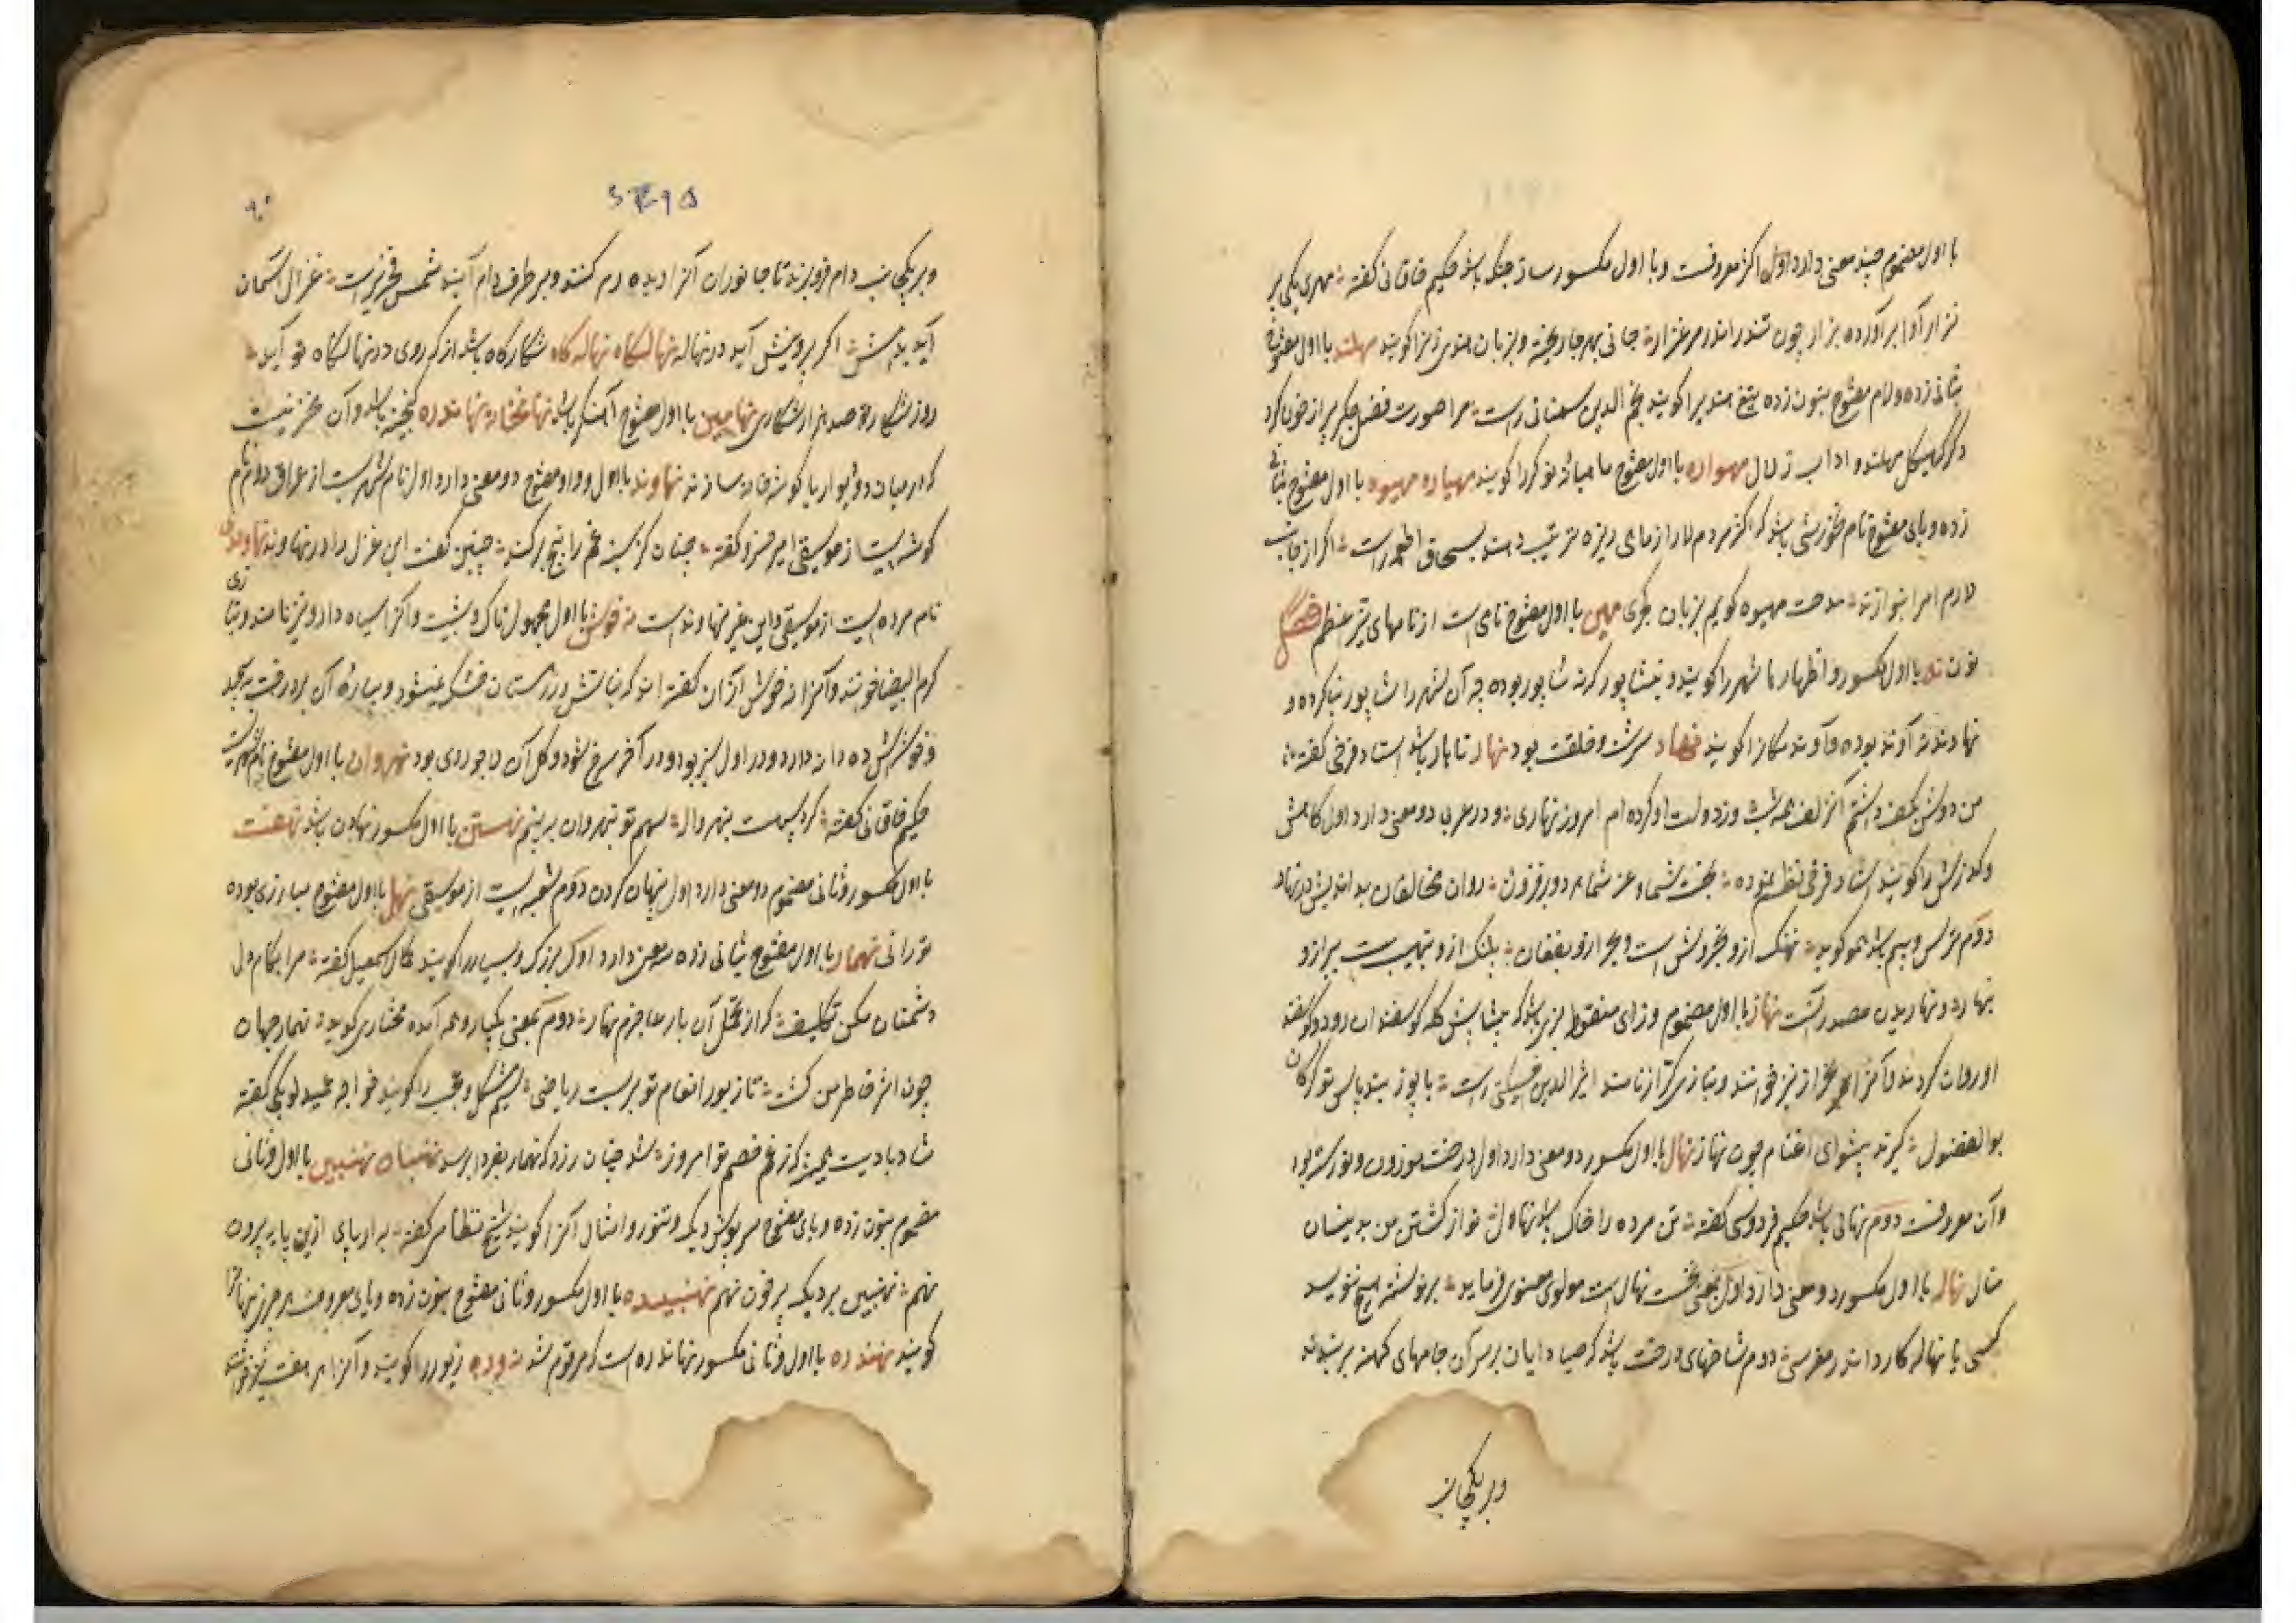 با اول مضموم چند معنی دارد اول اکثر معروفست و با اول مکسور ساز جنگ باشد حکیم خاقانی گفته مهری یکی پیر
نزار آوا برآورده بزار چون تندر اندر مرغزار جانی بهر جا ریخته و بزبان هندی زنرا گویند مهلند با اول مفتوح
بثانی زده و لام مفتوح بنون زده تیغ هندیرا گویند نجم الدین سمنانی راست مرا صورت فضل جگر پر از خون کرد
مهلند و اداب زلال مهواره با اول مفتوح ماهیانه نوکر را گویند مهیاده مهیوه با اول مفتوح بثانی
زده و یای مفتوح نام خورشی باشد که اکثر مردم لار از ماهی ریزه ترتیب دهند بسحاق اطعمه راست اگر از جانب
لارم امرا بنوازند مدحت مهیوه گویم بزبان جگری مهین با اول مفتوح نامی است از نامهای نیر اعظم فصل
نون نه با اول مکسور و اظهار ها شهر را گویند و نیشاپور که نه شاپور بوده چه آن شهر را شاپور بنا کرده و
نهاوند نه آوند بوده و آوند مکانرا گویند نهاد سرشت و خلقت بود نهار ناهار باشد استاد فرخی گفته
من دوش بکف داشتم آن زلف همه شب وز دولت او کرده ام امروز نهاری و در عربی دو معنی دارد اول کاهش
و گدازش را گویند استاد فرخی نظم نموده بخت شما و عز شما هر دو بر فزون روان مخالفان بداندیش در نهار
دوم ترس و بیم باشد همو گوید نهنک ازو بخروش است و ببر ازو بفغان پلنک ازو بنهیب است شیر ازو
بنهار و نهاریدن مصدر آنست نهاز با اول مضموم و زای منقوطه بزی باشد که پیشاپیش گله گوسفندان رود و گوسفندان
او روان گردند و آنرا نیز خوانند و بتازی کراز نامند اثیرالدین اخسیکتی راست
بوالفضول گیرند پیشوای اغنام چون نهاز نهال با اول مکسور دو معنی دارد اول درخت موزون و نورسته بود
و آن معروفست دوم نهانی باشد حکیم فردوسی گفته تن مرده را خاک باشد نهال تو از کشتن من بدینسان
منال نهاله با اول مکسور دو معنی دارد اول بمعنی نخست نهال است مولوی معنوی فرماید بر نوشته هیچ بنویسد
کسی یا نهاله کارد اندر مغرسی دوم شاخهای درخت باشد که صیادان بر سر آن جامهای کهنه بر بندند
و بر یکجانب
۹۰
و بر یکجانب دام فروبرند تا جانوران آنرا دیده رم کنند و بر طرف دام آیند شمس فخری راست غزال آسمان
آید بدامش اگر پرویش آید در نهاله نهالگاه نهاله گاه شکارگاه باشد از کروی در نهالگاه تو آید
روز شکار تو صد هزار شکاری نهامین با اول مفتوح آهنگر باشد نهانخانه نهاندره گنجینه باشد و آن مخزنیست
که در میان دو دیوار یا گوشه خانه سازند نهاوند با اول و واو مفتوح دو معنی دارد اول نام شهریست از عراق دوم نام
گوشه ایست از موسیقی امیر خسرو گفته چنان کز بیخ غم را بیخ برکند چنین گفت این غزل را در نهاوند نهاوندی
نام پرده ایست از موسیقی و این غیر نهاوند است نه خوش با اول مجهول تاک دشتیست و آنرا سیاه دارو نیز نامند و بتازی
کرم البیضا خوانند و آنرا نه خوش از آن گفته اند که نباتش در زمستان خشک نمیشود و بیاره آن بر درخت پیچد
و خوشه اش ده دانه دارد و در اول سبز بود و در آخر سرخ شود و گل آن لاجوردی بود نهروان با اول مفتوح نام شهریست
حکیم خاقانی گفته گرد سمت بنهرواله سهم تو بنهروان ببینم نهستن با اول مکسور نهادن باشد نهفت
با اول مکسور و ثانی مضموم دو معنی دارد اول پنهان کردن دوم شعبه ایست از موسیقی نهل با اول مفتوح مبارزی بوده
تورانی نهمار با اول مفتوح بثانی زده سه معنی دارد اول بزرک و بسیار را گویند کمال اسمعیل گفته مرا بکام دل
دشمنان مکن تکلیف که از تحمل آن بار عاجزم نهمار دوم بمعنی یکبار و همه آمده مختاری گوید نهمار جهان
چون اثر خاطر من گشت تا زیور انعام تو بر بست ریاضی سیم مشکل و عجب را گویند خواجه عمید لوبکی گفته
شاد بادیت همیشه کز غم خصم تو امروز شد چنان زرد که نهمار بفردا برسد نهنبان نهنبین با اول و ثانی
مضموم بنون زده و بای مفتوح سرپوش دیک و تنور و امثال آنرا گویند شیخ نظامی گفته برار پای ازین پایه بیرون
نهم نهنبین بر دیک پر خون نهم نهنبیده با اول مکسور و ثانی مفتوح بنون زده و بای معروف هر چیز پنهانرا
گویند نهندره با اول و ثانی مکسور نهاندره است که مرقوم شد نه و ده زیور را گویند و آنرا هر هفت نیز خوانند